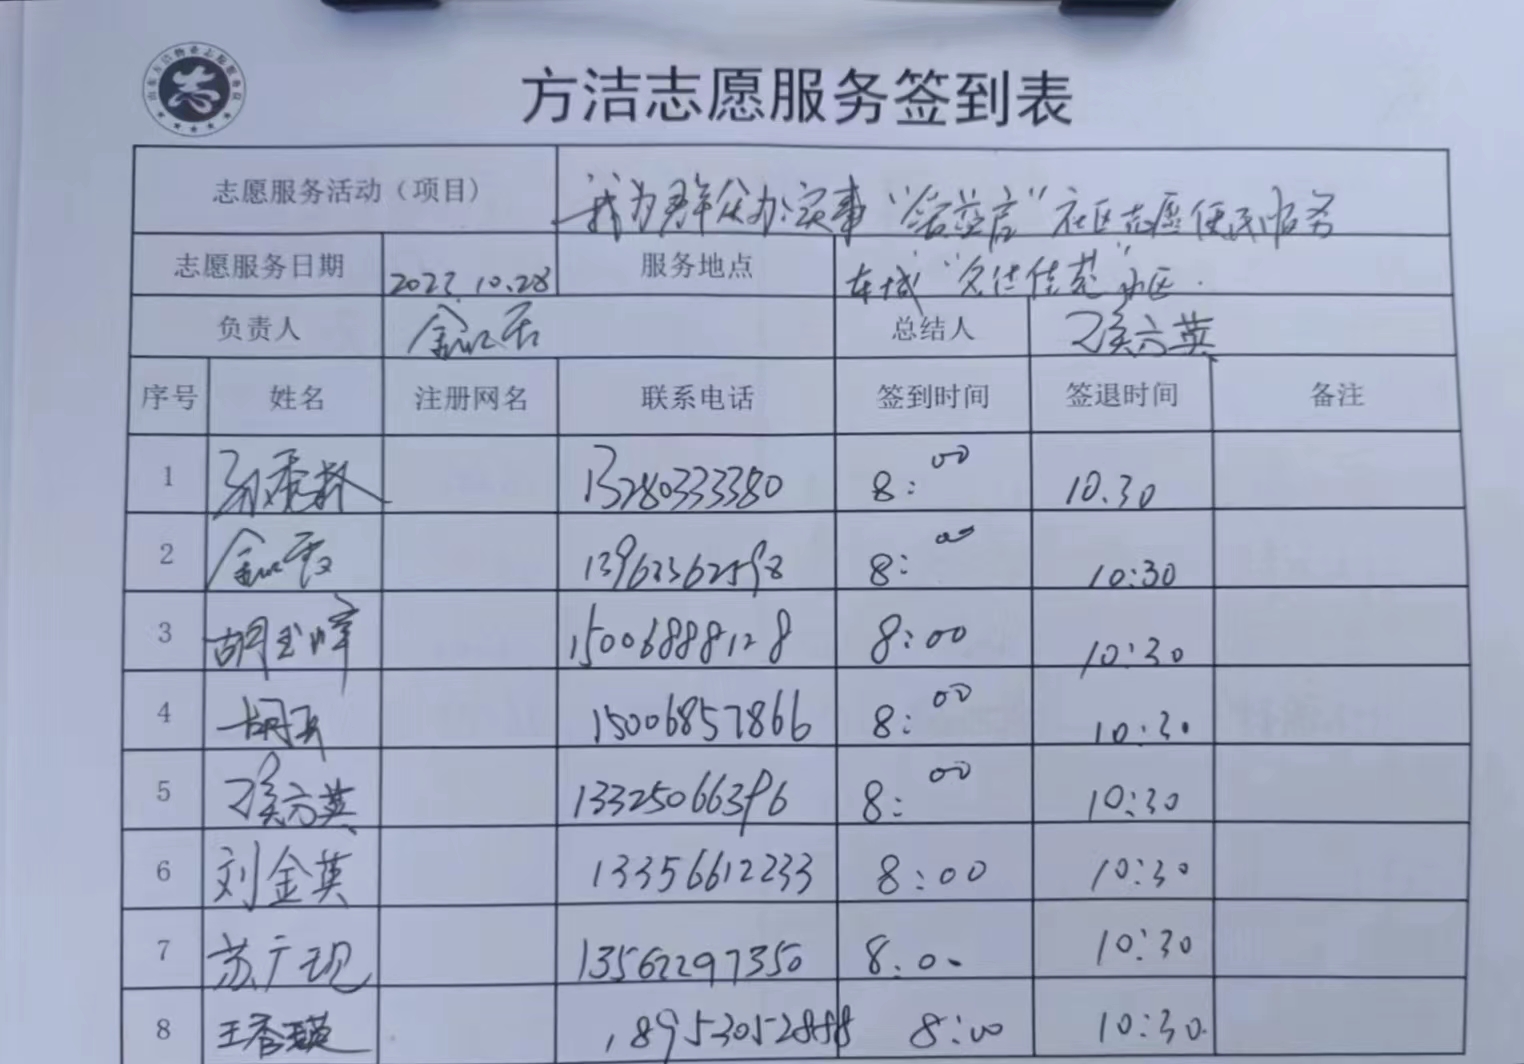 志
方洁志愿服务签到表
志愿服务活动（项目） 我为群众办实事“公益店”社区志愿便民服务
志愿服务日期 2022.10.28 服务地点 东城“佳苑”小区
负责人 总结人 侯六英
序号 姓名 注册网名 联系电话 签到时间 签退时间 备注
1 13280333380 8:00 10.30
2 8:00 10:30
3 胡玉峰 15006888128 8:00 10:30
4 15006857866 8:00 10:30
5 侯六英 13325066396 8:00 10:30
6 刘金英 13356612233 8:00 10:30
7 苏广现 13562297350 8:00 10:30
8 王香瑛 18953052888 8:00 10:30